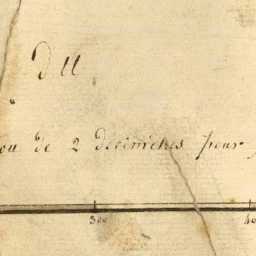 du
ou de 2 decimètres pour
300
40